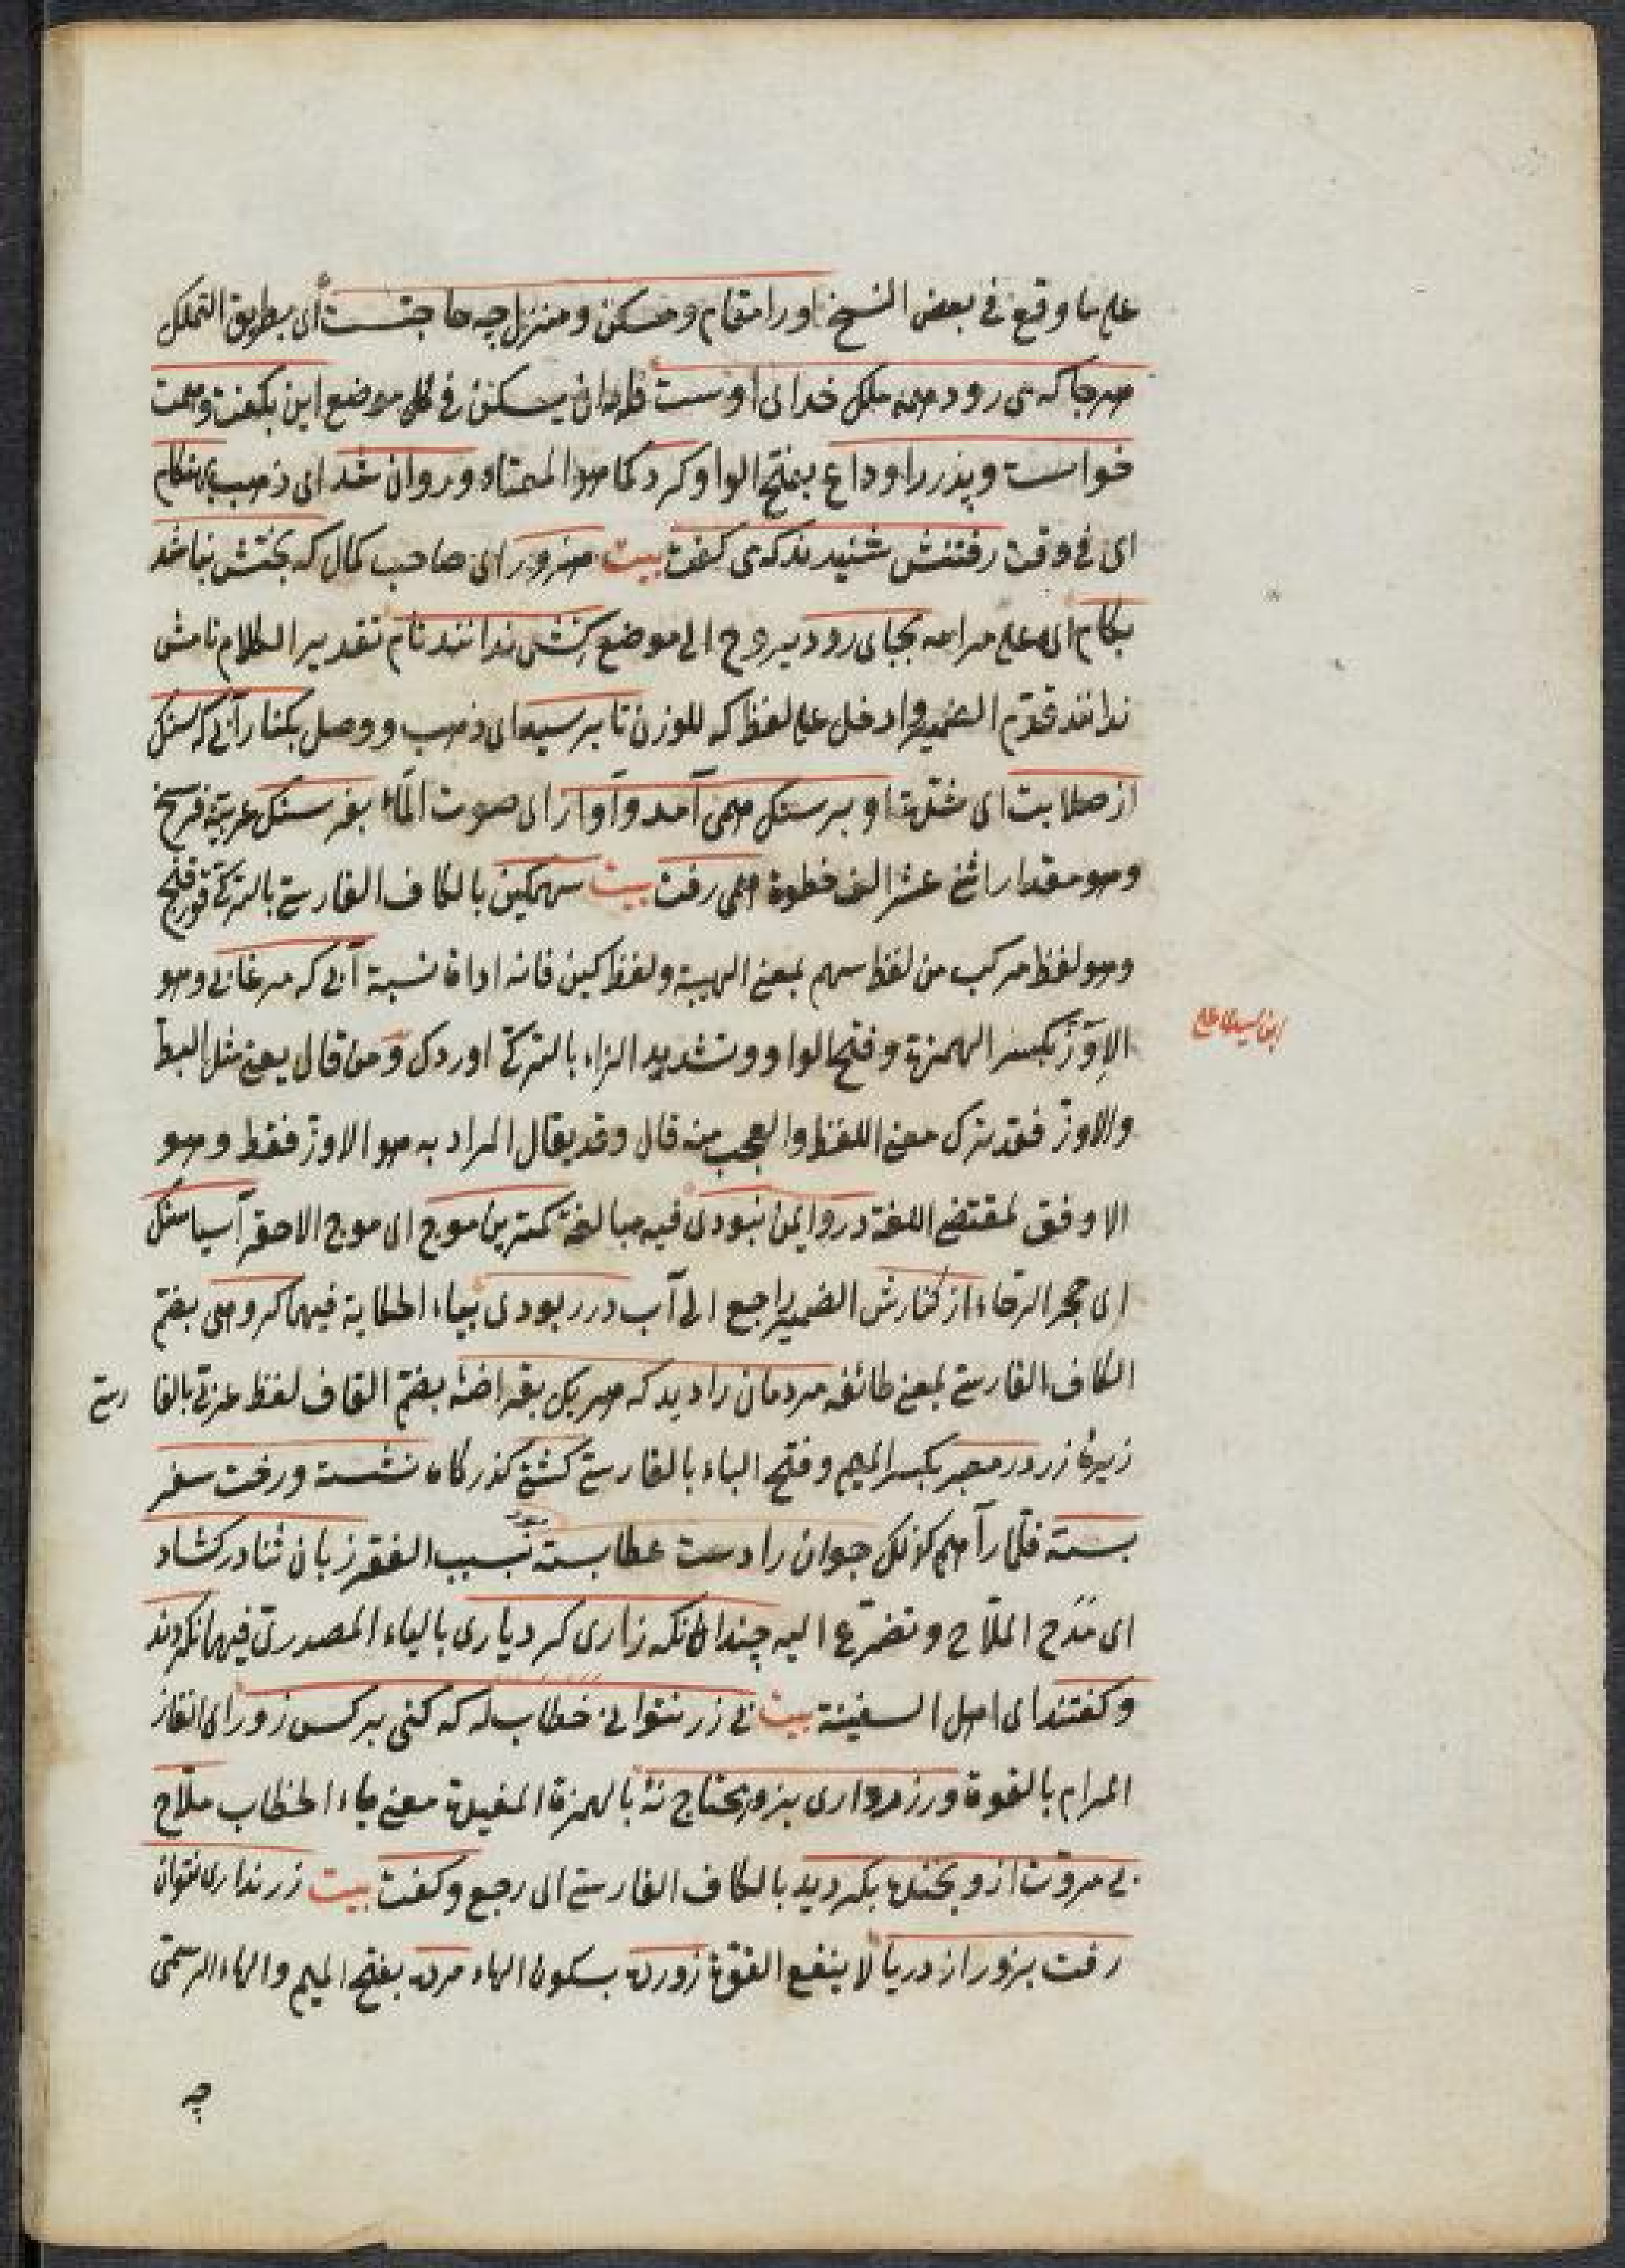 على ما وقع فى بعض النسخ اورا مقام ومسكن ومنزل چه حاجتست اى بطريق التملك
هر جا كه مى رود همه ملك خداى اوست فله ان يسكن فى كل موضع اين بكفت وهمت
خواست وپدر را وداع بفتح الواو كرد كما هو المعتاد وروان شد اى ذهب هنكام
اى فى وقت رفتنش شنيدند كه مى كفت بيت هنرور اى صاحب كمال كه بختش نباشد
بكام اى على مرامه بجاى رود يروح الى موضع كش ندانند نام تقدير الكلام نامش
ندانند قدّم الضمير وادخل على لفظ كه للوزن تا برسيد اى ذهب ووصل بكنار آبى كه سنك
از صلابت اى شدّت او بر سنك همى آمد وآواز اى صوت الماء بفرسنك عربيّة فرسخ
وهو مقدار اثنى عشر الف خطوة همى رفت بيت سهمكين بالكاف الفارسى بالتركى قورقنج
وهو لفظ مركب من لفظ سهم بمعنى الهيبة ولفظ كين فانه اداة نسبة آبى كه مرغابى وهو
الاِوَزّ بكسر الهمزة وفتح الواو وتشديد الزاء بالتركى اوردك ومن قال يعنى مثل البط
والاوزّ فقد ترك معنى اللفظ والعجب منه قال وقد يقال المراد به هو الاوزّ فقط وهو
الاوفق لمقتضى اللغة درو ايمن نبودى فيه مبالغة كمترين موج اى موج الاحقر آسياسنك
اى حجر الرحاء از كنارش الضمير راجع الى آب در ربودى بياء الحكاية فيهما كروهى بضم
الكاف الفارسى بمعنى طائفه مردمان را ديد كه هر يك بقراضهٔ بضم القاف لفظ عربى بالفارسى
زيرهٔ زر در معبر بكسر الميم وفتح الباء بالفارسى كشتئ كذركاه نشسته ورخت سفر
بسته فلمّا رآهم كذلك جوان را دست عطا بسته بود بسبب الفقر زبان ثنا در كشاد
اى مَدَح الملّاح وتضرّع اليه چندانكه زارى كرد يارى بالياء المصدرى فيهما نكردند
وكفتند اى اهل السفينة بيت بى زر نتوانى خطاب له كه كنى بر كس زور اى انفاذ
المرام بالقوة ور زر دارى بزور محتاج نهٔ بالهمزة المفيدة معنى ياء الخطاب ملّاح
بى مروّت ازو بخنده بكرديد بالكاف الفارسى اى رجع وكفت بيت زر ندارى نتوان
رفت بزور از دريا لا ينفع القوّة زورده بسكون الهاء مرده بفتح الميم والهاء الرسمى
چه
ابن سيد على